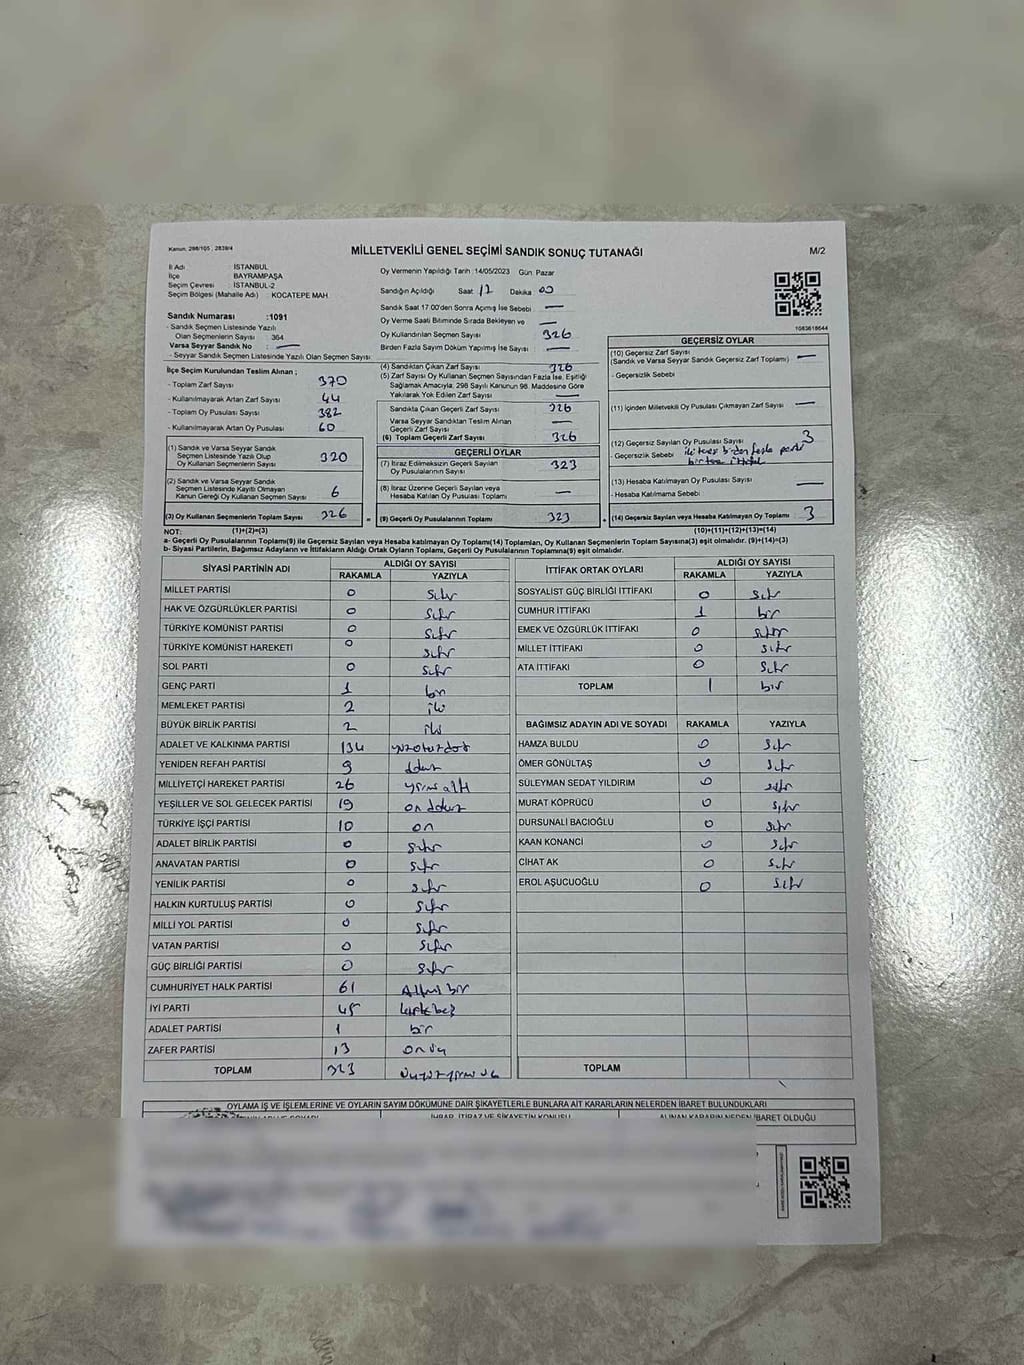 Kanun, 298/105 , 2839/4
MİLLETVEKİLİ GENEL SEÇİMİ SANDIK SONUÇ TUTANAĞI
M/2
İl Adı : İSTANBUL
İlçe : BAYRAMPAŞA
Seçim Çevresi : İSTANBUL-2
Seçim Bölgesi (Mahalle Adı) : KOCATEPE MAH.
Sandık Numarası :1091
- Sandık Seçmen Listesinde Yazılı
Olan Seçmenlerin Sayısı : 364
Varsa Seyyar Sandık No : —
- Seyyar Sandık Seçmen Listesinde Yazılı Olan Seçmen Sayısı:
Oy Vermenin Yapıldığı Tarih :14/05/2023 Gün: Pazar
Sandığın Açıldığı Saat 17 Dakika 00
Sandık Saat 17:00'den Sonra Açımış İse Sebebi —
Oy Verme Saati Bitiminde Sırada Bekleyen ve
Oy Kullandırılan Seçmen Sayısı 326
Birden Fazla Sayım Döküm Yapılmış İse Sayısı —
1083618644
İlçe Seçim Kurulundan Teslim Alınan ;
- Toplam Zarf Sayısı 370
- Kullanılmayarak Artan Zarf Sayısı 44
- Toplam Oy Pusulası Sayısı 382
- Kullanılmayarak Artan Oy Pusulası 60
(1) Sandık ve Varsa Seyyar Sandık
Seçmen Listesinde Yazılı Olup
Oy Kullanan Seçmenlerin Sayısı 320
(2) Sandık ve Varsa Seyyar Sandık
Seçmen Listesinde Kayıtlı Olmayan
Kanun Gereği Oy Kullanan Seçmen Sayısı 6
(3) Oy Kullanan Seçmenlerin Toplam Sayısı 326
(1)+(2)=(3)
(4) Sandıktan Çıkan Zarf Sayısı 326
(5) Zarf Sayısı Oy Kullanan Seçmen Sayısından Fazla İse, Eşitliği
Sağlamak Amacıyla, 298 Sayılı Kanunun 98. Maddesine Göre
Yakılarak Yok Edilen Zarf Sayısı —
Sandıkta Çıkan Geçerli Zarf Sayısı 326
Varsa Seyyar Sandıktan Teslim Alınan
Geçerli Zarf Sayısı —
(6) Toplam Geçerli Zarf Sayısı 326
GEÇERLİ OYLAR
(7) İtiraz Edilmeksizin Geçerli Sayılan
Oy Pusulalarının Sayısı 323
(8) İtiraz Üzerine Geçerli Sayılan veya
Hesaba Katılan Oy Pusulası Toplamı —
= (9) Geçerli Oy Pusulalarının Toplamı 323
GEÇERSİZ OYLAR
(10) Geçersiz Zarf Sayısı
(Sandık ve Varsa Seyyar Sandık Geçersiz Zarf Toplamı) —
- Geçersizlik Sebebi
(11) İçinden Milletvekili Oy Pusulası Çıkmayan Zarf Sayısı —
(12) Geçersiz Sayılan Oy Pusulası Sayısı 3
- Geçersizlik Sebebi birden fazla parti
(13) Hesaba Katılmayan Oy Pusulası Sayısı —
- Hesaba Katılmama Sebebi
+ (14) Geçersiz Sayılan veya Hesaba Katılmayan Oy Toplamı 3
(10)+(11)+(12)+(13)=(14)
NOT:
a- Geçerli Oy Pusulalarının Toplamı(9) ile Geçersiz Sayılan veya Hesaba katılmayan Oy Toplamı(14) Toplamları, Oy Kullanan Seçmenlerin Toplam Sayısına(3) eşit olmalıdır. (9)+(14)=(3)
b- Siyasi Partilerin, Bağımsız Adayların ve İttifakların Aldığı Ortak Oyların Toplamı, Geçerli Oy Pusulalarının Toplamına(9) eşit olmalıdır.
SİYASİ PARTİNİN ADI ALDIĞI OY SAYISI
RAKAMLA YAZIYLA
MİLLET PARTİSİ 0 sıfır
HAK VE ÖZGÜRLÜKLER PARTİSİ 0 sıfır
TÜRKİYE KOMÜNİST PARTİSİ 0 sıfır
TÜRKİYE KOMÜNİST HAREKETİ 0 sıfır
SOL PARTİ 0 sıfır
GENÇ PARTİ 1 bir
MEMLEKET PARTİSİ 2 iki
BÜYÜK BİRLİK PARTİSİ 2 iki
ADALET VE KALKINMA PARTİSİ 134 yüzotuzdört
YENİDEN REFAH PARTİSİ 9 dokuz
MİLLİYETÇİ HAREKET PARTİSİ 26 yirmi altı
YEŞİLLER VE SOL GELECEK PARTİSİ 19 on dokuz
TÜRKİYE İŞÇİ PARTİSİ 10 on
ADALET BİRLİK PARTİSİ 0 sıfır
ANAVATAN PARTİSİ 0 sıfır
YENİLİK PARTİSİ 0 sıfır
HALKIN KURTULUŞ PARTİSİ 0 sıfır
MİLLİ YOL PARTİSİ 0 sıfır
VATAN PARTİSİ 0 sıfır
GÜÇ BİRLİĞİ PARTİSİ 0 sıfır
CUMHURİYET HALK PARTİSİ 61 Altmış bir
İYİ PARTİ 45 kırkbeş
ADALET PARTİSİ 1 bir
ZAFER PARTİSİ 13 onüç
TOPLAM 323 üçyüzyirmi üç
İTTİFAK ORTAK OYLARI ALDIĞI OY SAYISI
RAKAMLA YAZIYLA
SOSYALİST GÜÇ BİRLİĞİ İTTİFAKI 0 sıfır
CUMHUR İTTİFAKI 1 bir
EMEK VE ÖZGÜRLÜK İTTİFAKI 0 sıfır
MİLLET İTTİFAKI 0 sıfır
ATA İTTİFAKI 0 sıfır
TOPLAM 1 bir
BAĞIMSIZ ADAYIN ADI VE SOYADI RAKAMLA YAZIYLA
HAMZA BULDU 0 sıfır
ÖMER GÖNÜLTAŞ 0 sıfır
SÜLEYMAN SEDAT YILDIRIM 0 sıfır
MURAT KÖPRÜCÜ 0 sıfır
DURSUNALİ BACIOĞLU 0 sıfır
KAAN KONANCİ 0 sıfır
CİHAT AK 0 sıfır
EROL AŞUCUOĞLU 0 sıfır
TOPLAM
OYLAMA İŞ VE İŞLEMLERİNE VE OYLARIN SAYIM DÖKÜMÜNE DAİR ŞİKAYETLERLE BUNLARA AİT KARARLARIN NELERDEN İBARET BULUNDUKLARI
İHBAR, İTİRAZ VE ŞİKAYETİN KONUSU ALINAN KARARIN NEDEN İBARET OLDUĞU